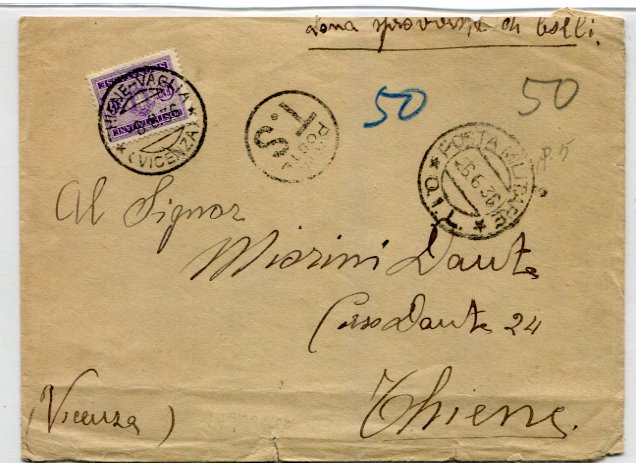 zona sprovvista di bolli.
50
50
THIENE-VAGLIA
(VICENZA)
T.S
POSTA
POSTA MILITARE
6.9.36
Al Signor
Miorini Dante
Corso Dante 24
(Vicenza)
Thiene